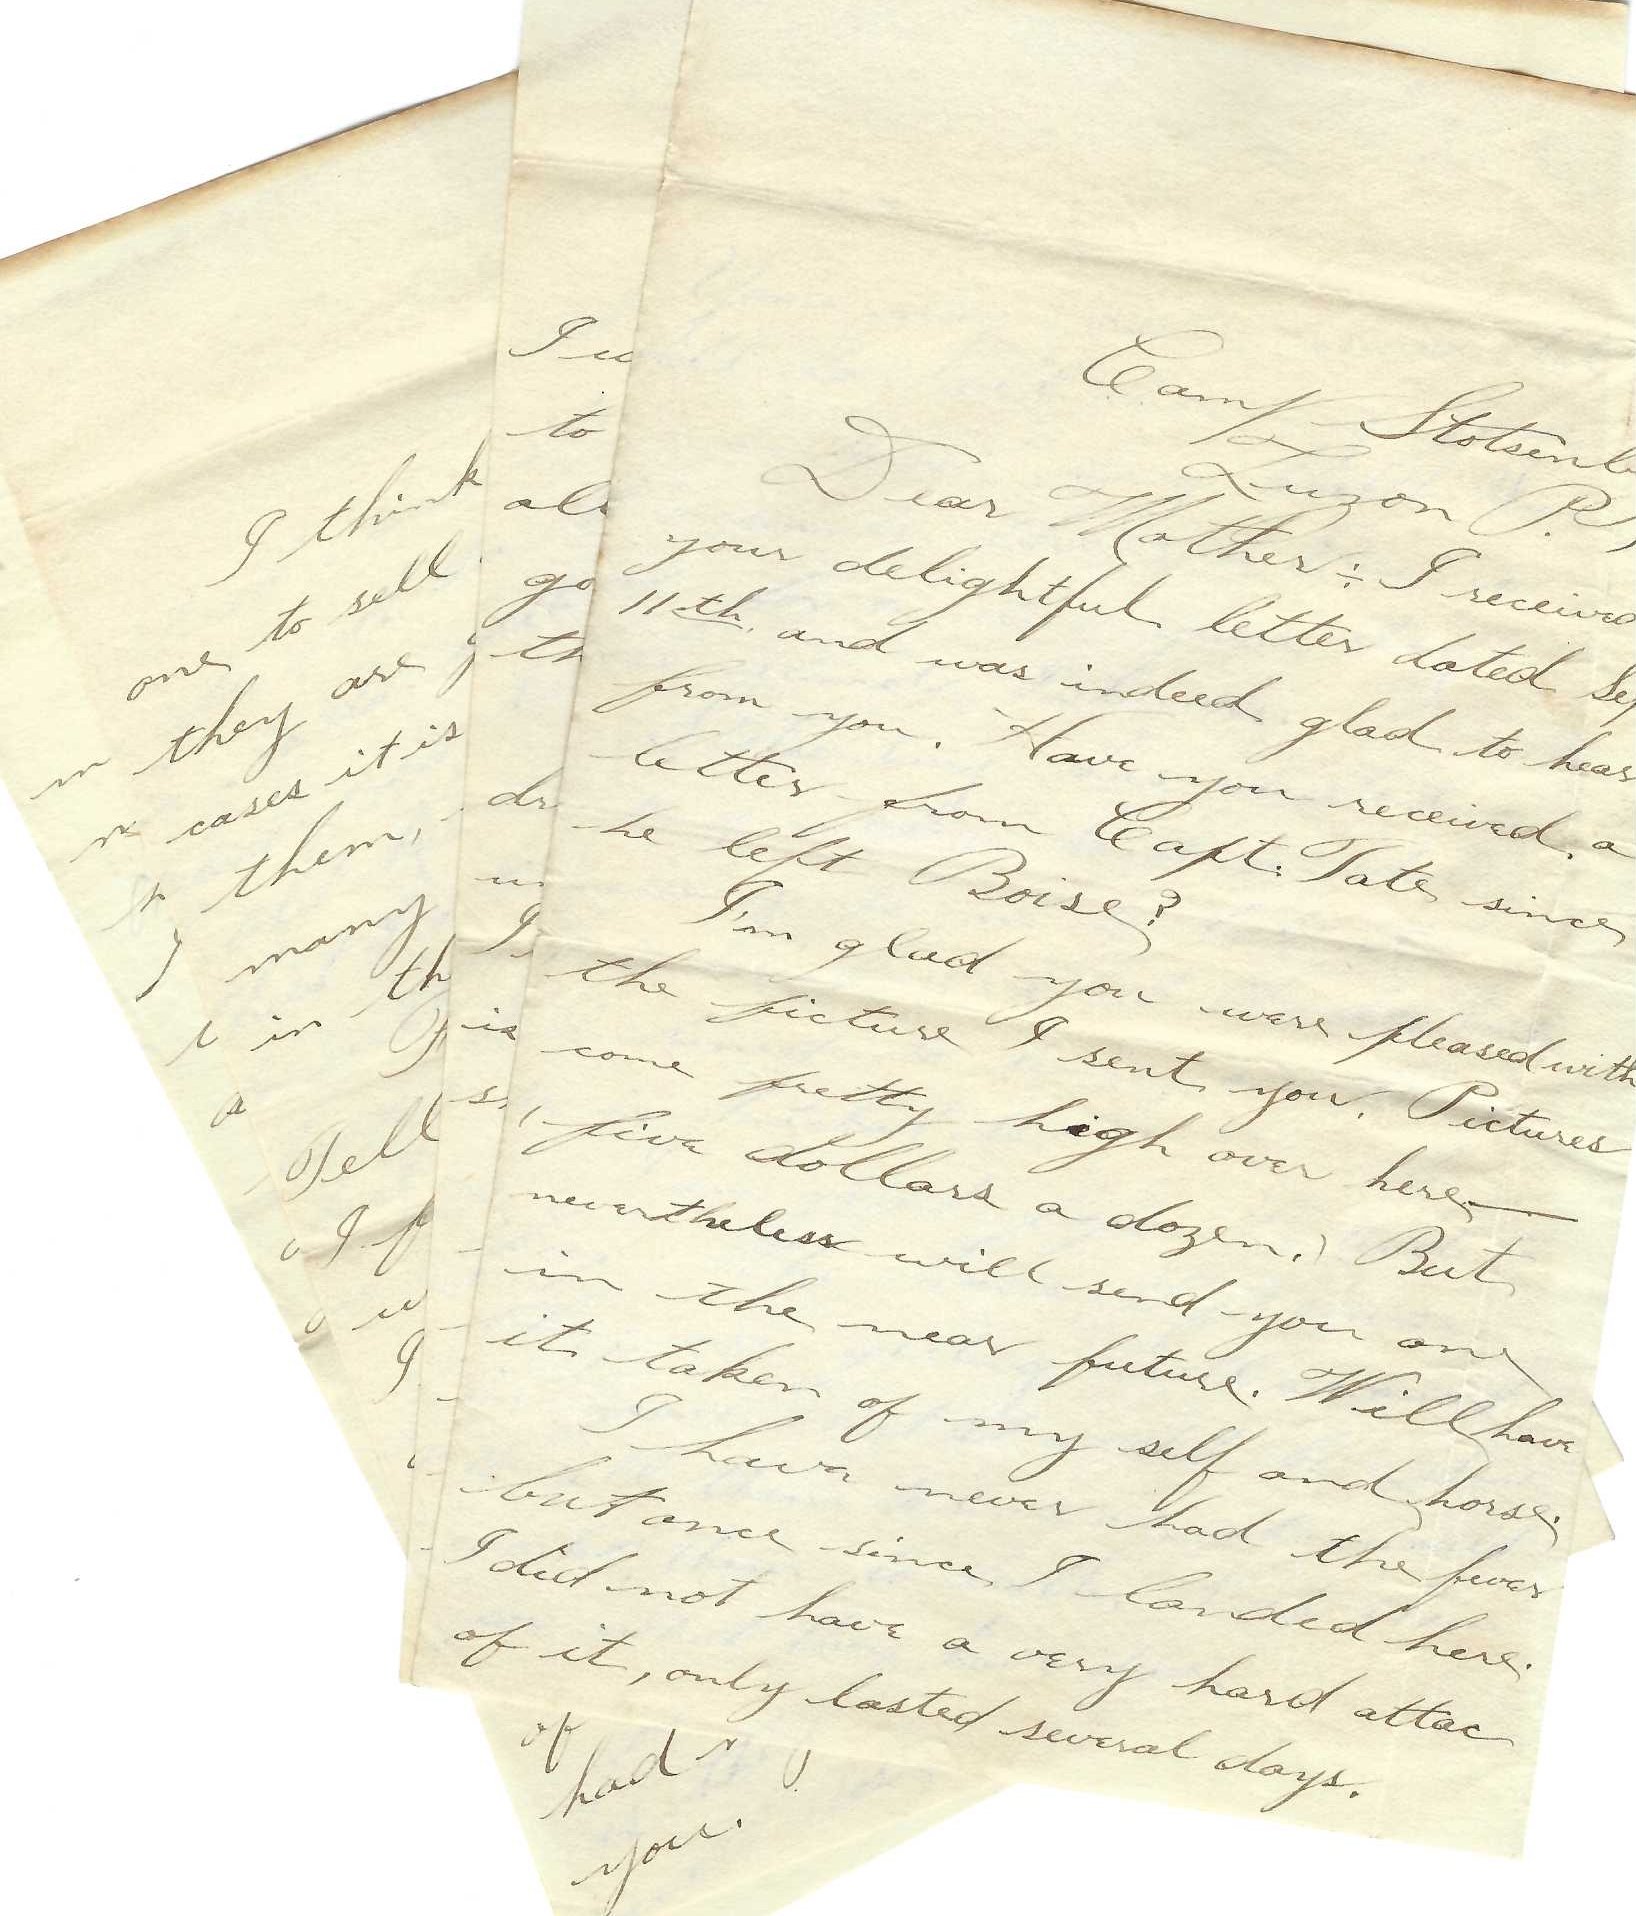 Camp Stotsenb
Luzon P.
Dear Mother:- I received
your delightful letter dated Sep
11th, and was indeed glad to hear
from you. Have you received a
letter from Capt. Tate since
he left Boise?
I'm glad you were pleased with
the picture I sent you. Pictures
come pretty high over here—
five dollars a dozen. But
nevertheless will send you one
in the near future. Will have
it taken of my self and horse.
I have never had the fever
but once since I landed here.
I did not have a very hard attac
of it, only lasted several days.
I w
to
go
th
dr
is
I think
one to sell
they are
cases it is
them,
many
in th
Tell
I
of
had
you.